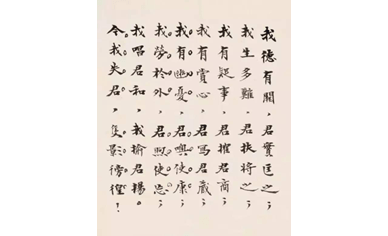 我德有闕，君實匡之；
我生多難，君扶將之；
我有疑事，君榷君商；
我有賞心，君寫君藏；
我有幽憂，君噢使康；
我勞於外，君煦使忘；
我唱君和，我揄君揚；
今我失君，隻影徬徨！